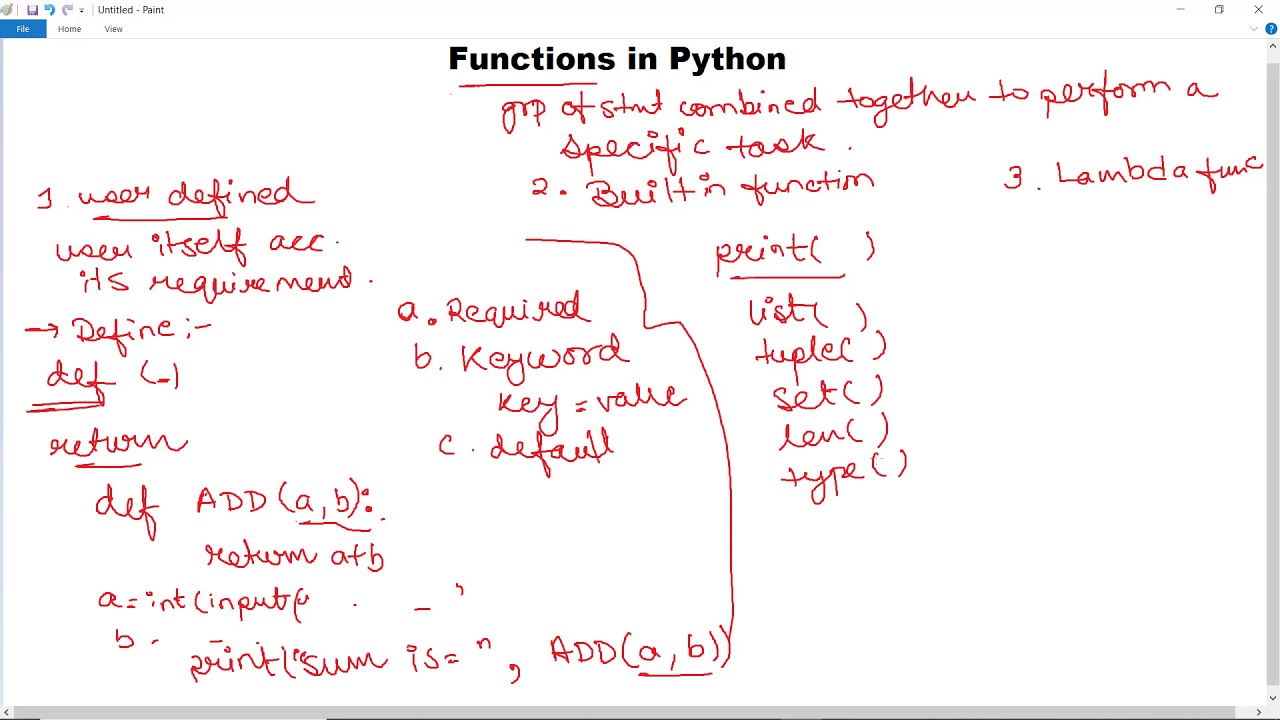 Untitled - Paint
File Home View
Functions in Python
grp of stmt combined together to perform a
specific task.
1. user defined
user itself acc.
its requirement.
→ Define :-
def (_)
return
def ADD(a,b):
return a+b
a=int(input("
b
print("sum is= ", ADD(a,b))
a. Required
b. Keyword
key = value
c. default
2. Built in function
print( )
list( )
tuple( )
set( )
len( )
type( )
3. Lambda func